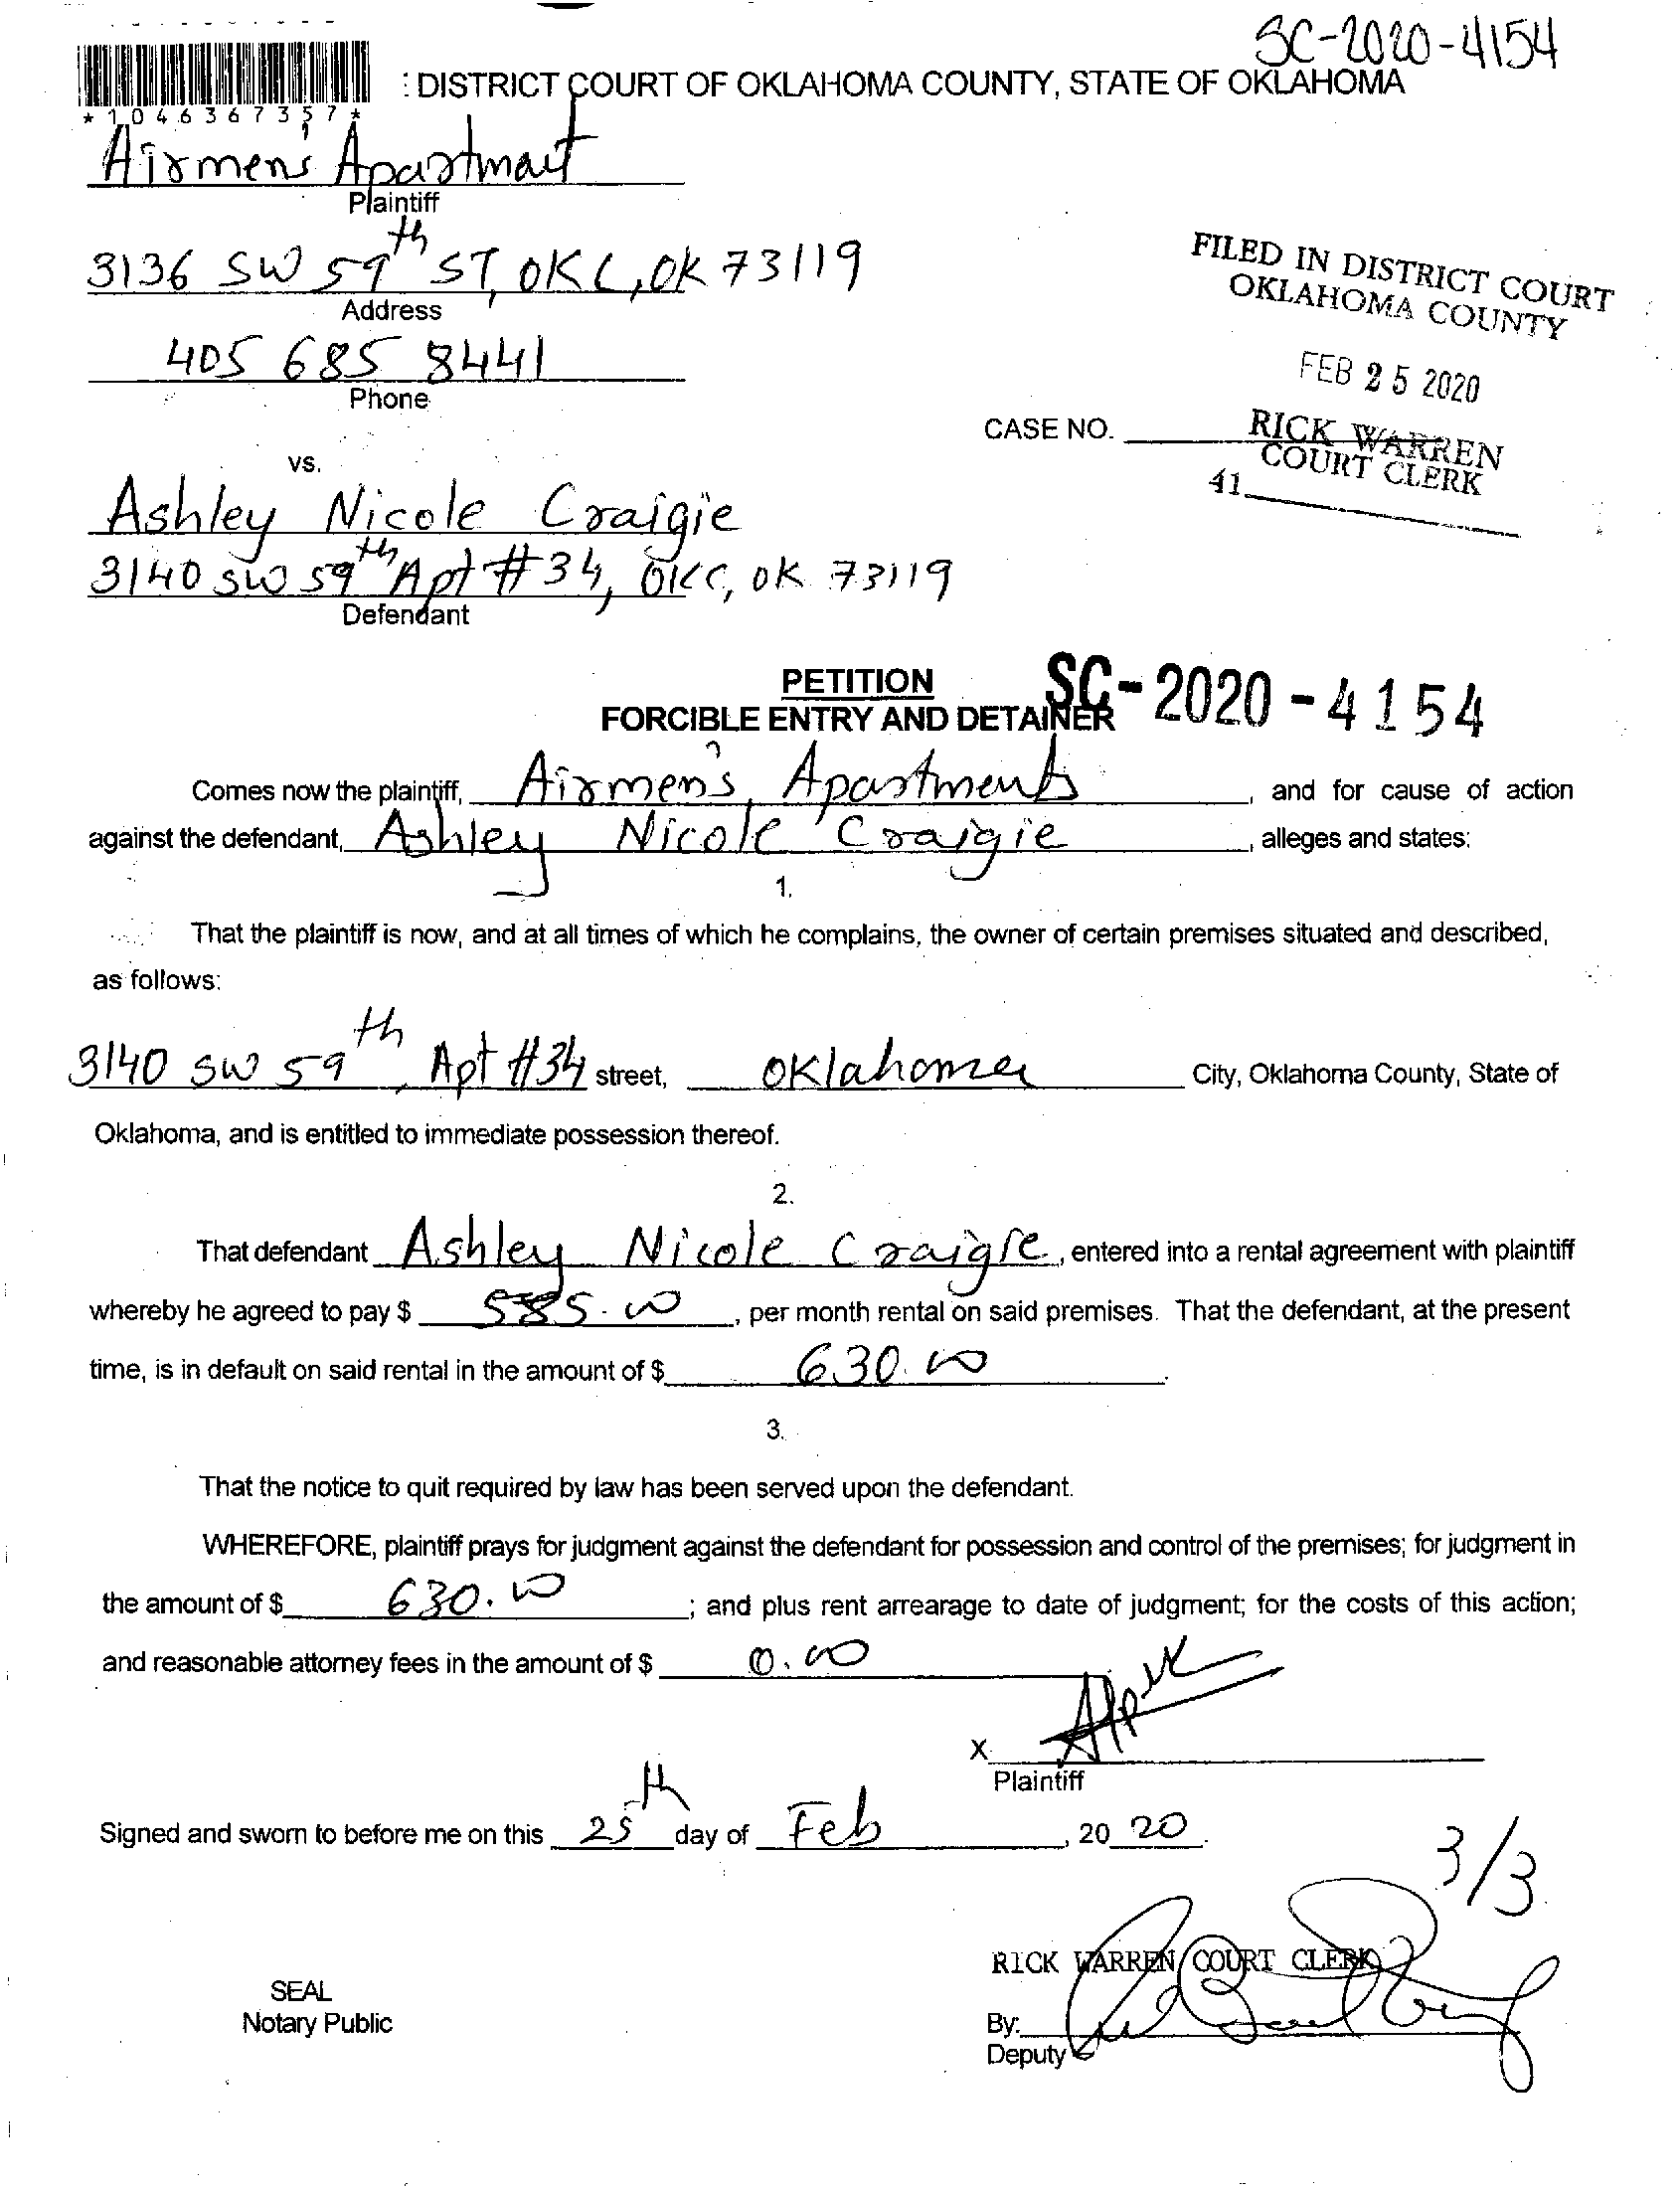 SC-2020-4154
: DISTRICT COURT OF OKLAHOMA COUNTY, STATE OF OKLAHOMA
* 1 0 4 6 3 6 7 3 5 7 *
Airmen's Apartment
Plaintiff
3136 SW 59th ST, OKC, OK 73119
Address
405 685 8441
Phone
FILED IN DISTRICT COURT
OKLAHOMA COUNTY
FEB 25 2020
RICK WARREN
COURT CLERK
41
CASE NO.
vs.
Ashley Nicole Craigie
3140 SW 59th Apt #34, OKC, OK 73119
Defendant
PETITION
FORCIBLE ENTRY AND DETAINER
SC-2020-4154
Comes now the plaintiff, Airmen's Apartments, and for cause of action
against the defendant, Ashley Nicole Craigie, alleges and states:
1.
That the plaintiff is now, and at all times of which he complains, the owner of certain premises situated and described,
as follows:
3140 SW 59th, Apt #34 street, Oklahoma City, Oklahoma County, State of
Oklahoma, and is entitled to immediate possession thereof.
2.
That defendant Ashley Nicole Craigie, entered into a rental agreement with plaintiff
whereby he agreed to pay $ 585.00, per month rental on said premises. That the defendant, at the present
time, is in default on said rental in the amount of $ 630.00.
3.
That the notice to quit required by law has been served upon the defendant.
WHEREFORE, plaintiff prays for judgment against the defendant for possession and control of the premises; for judgment in
the amount of $ 630.00; and plus rent arrearage to date of judgment; for the costs of this action;
and reasonable attorney fees in the amount of $ 0.00
X
Plaintiff
Signed and sworn to before me on this 25th day of Feb, 20 20.
3/3
RICK WARREN COURT CLERK
SEAL
Notary Public
By:
Deputy